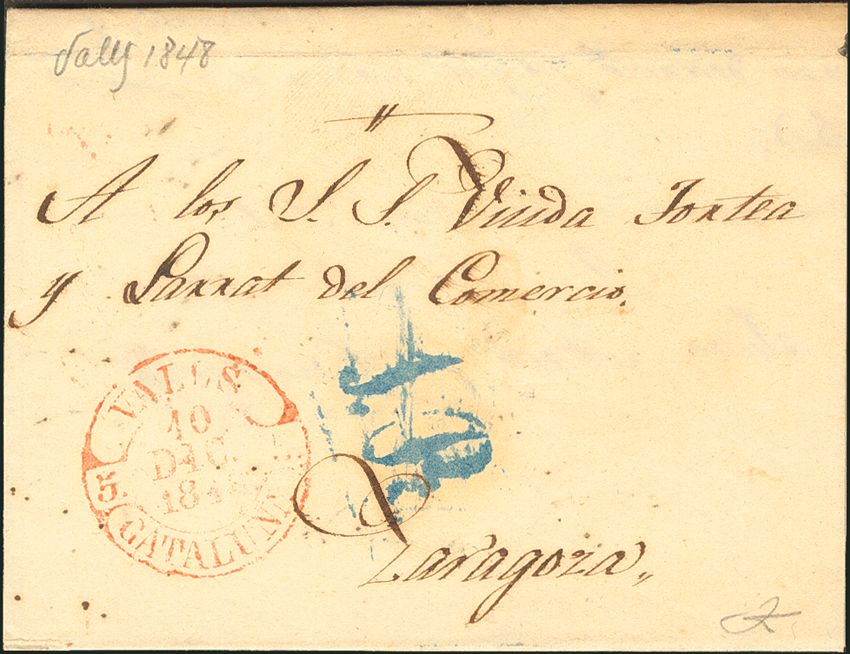 Valls 1848
A los S. S. Viuda Fortea
y Parrat del Comercio.
VALLS
10
DIC.
184
5.
CATALUÑ
Zaragoza